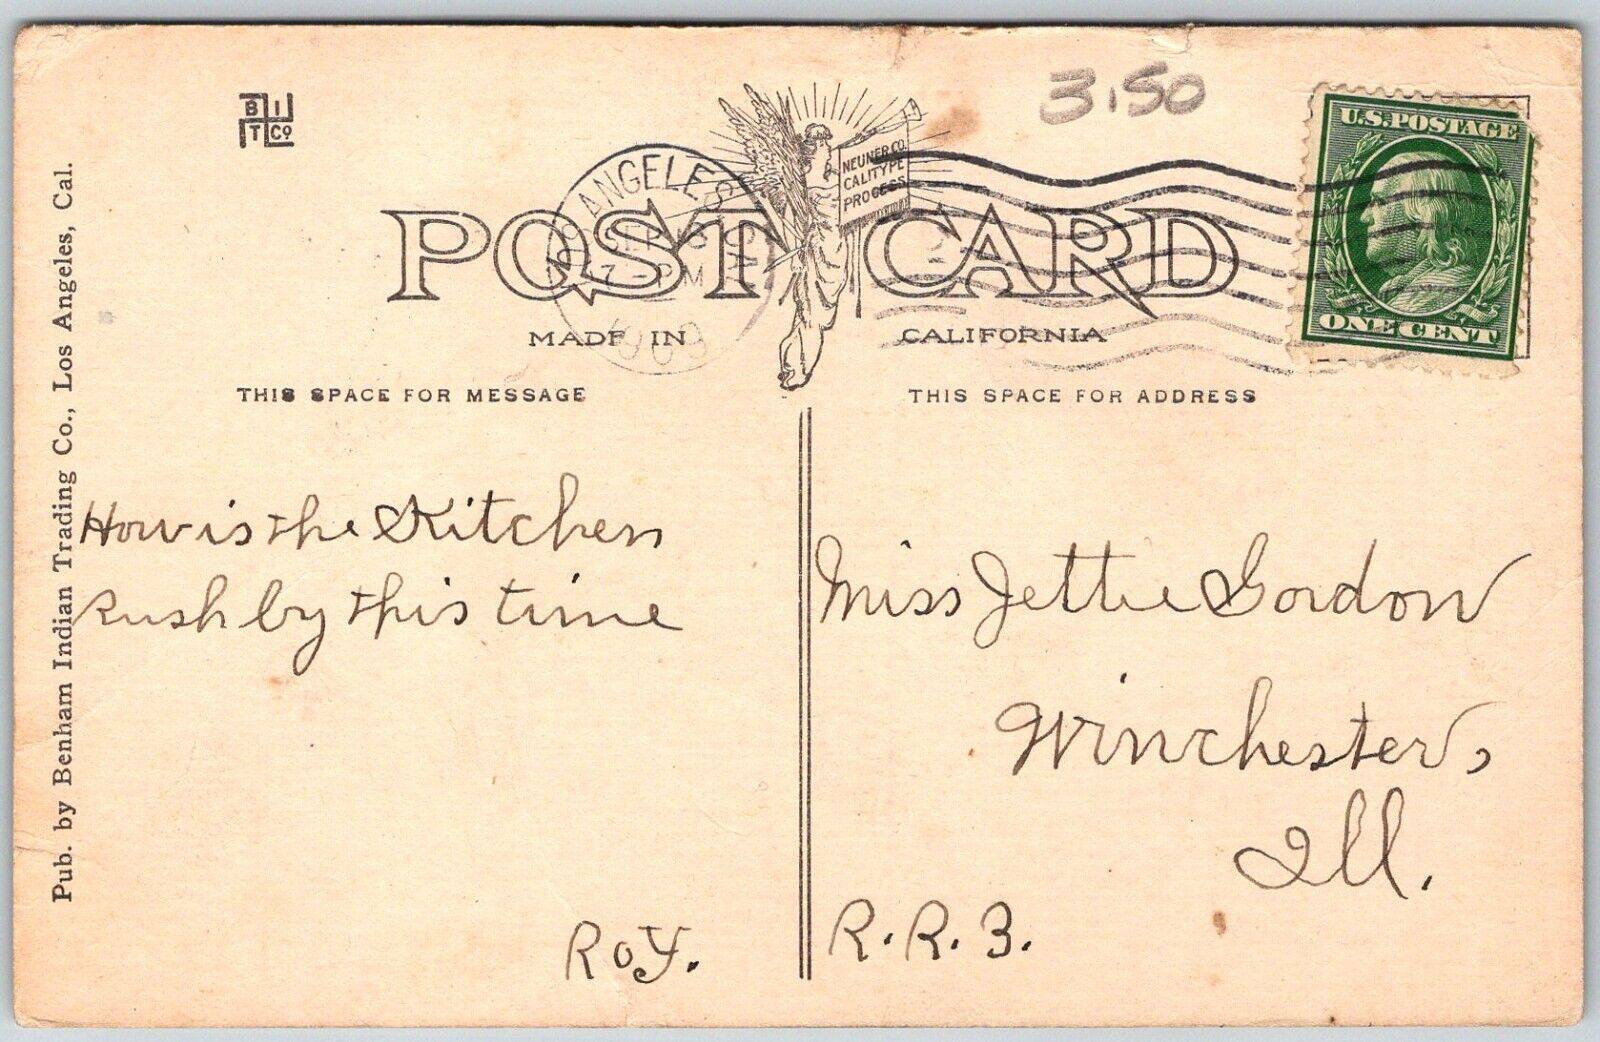 B I
T Co
3.50
U.S. POSTAGE
ONE CENT
NEUNER CO.
CALITYPE
PROCESS
LOS ANGELES
SEP
7-PM
1909
POST CARD
MADE IN CALIFORNIA
THIS SPACE FOR MESSAGE
THIS SPACE FOR ADDRESS
Pub. by Benham Indian Trading Co., Los Angeles, Cal.
How is the Kitchen
Rush by this time
Roy.
Miss Jettie Gordon
Winchester,
Ill.
R.R.3.